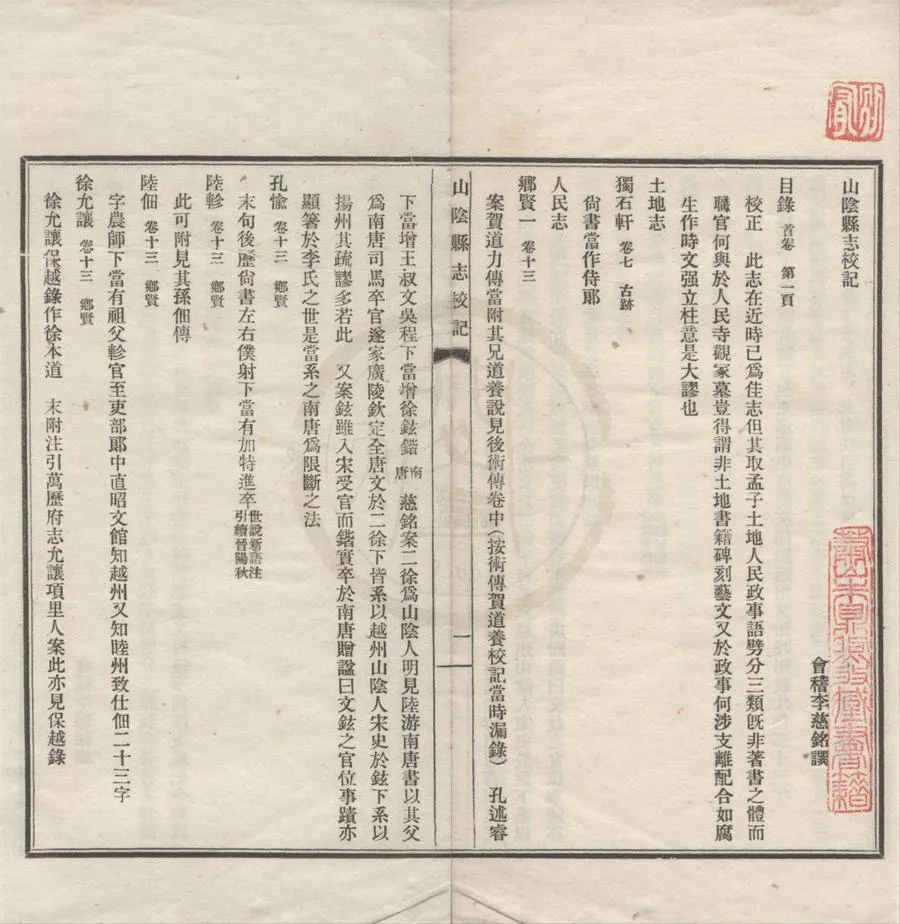 山陰縣志校記
會稽李慈銘譔
目錄 首卷 第一頁
校正 此志在近時已爲佳志但其取孟子土地人民政事語劈分三類旣非著書之體而
職官何與於人民寺觀冢墓豈得謂非土地書籍碑刻藝文又於政事何涉支離配合如腐
生作時文强立柱意是大謬也
土地志
獨石軒 卷七 古跡
尙書當作侍郞
人民志
鄉賢一 卷十三
案賀道力傳當附其兄道養說見後術傳卷中(按術傳賀道養校記當時漏錄) 孔述睿
山陰縣志校記 一
下當增王叔文吳程下當增徐鉉鍇 南唐 慈銘案二徐爲山陰人明見陸游南唐書以其父
爲南唐司馬卒官遂家廣陵欽定全唐文於二徐下皆系以越州山陰人宋史於鉉下系以
揚州其疏謬多若此 又案鉉雖入宋受官而鍇實卒於南唐贈諡曰文鉉之官位事蹟亦
顯箸於李氏之世是當系之南唐爲限斷之法
孔愉 卷十三 鄉賢
末句後歷尙書左右僕射下當有加特進卒 世說新語注引續晉陽秋
陸軫 卷十三 鄉賢
此可附見其孫佃傳
陸佃 卷十三 鄉賢
字農師下當有祖父軫官至吏部郞中直昭文館知越州又知睦州致仕佃二十三字
徐允讓 卷十三 鄉賢
徐允讓保越錄作徐本道 末附注引萬歷府志允讓項里人案此亦見保越錄